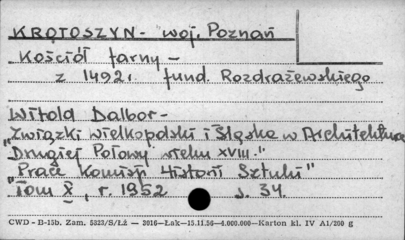 KROTOSZYN - woj. Poznań
Kościół farny -
z 1492 r. fund. Rozdrażewskiego
Witold Dalbor -
"Związki wielkopolski i Śląska w Architekturze
Drugiej Połowy wieku XVIII."
"Prace Komisji Historii Sztuki"
Tom X, r. 1952 s. 34.
CWD - B-15b. Zam. 5323/S/Łż — 2016—Łak—15.11.50—4.000.000—Karton kl. IV A1/200 g